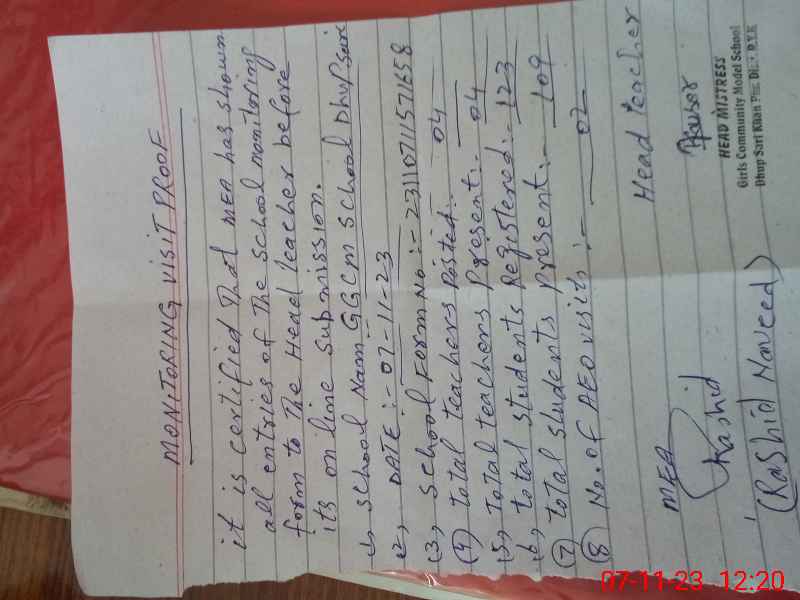 MONITORING VISIT PROOF
it is certified that MEA has shown
all entries of the school monitoring
form to the Head teacher before
its online submission.
(1) School Nam GGCM School Dhup Sari
(2) DATE :- 07-11-23
(3) School Form No :- 231107115716 58
(4) total teachers Posted:- 04
(5) Total teachers Present:- 04
(6) total students Registered:- 123
(7) total students present:- 109
(8) No. of AEO visits :- 02
MEA Head teacher
Rashid
(Rashid Naveed)
HEAD MISTRESS
Girls Community Model School
Dhup Sari Khan
07-11-23 12:20